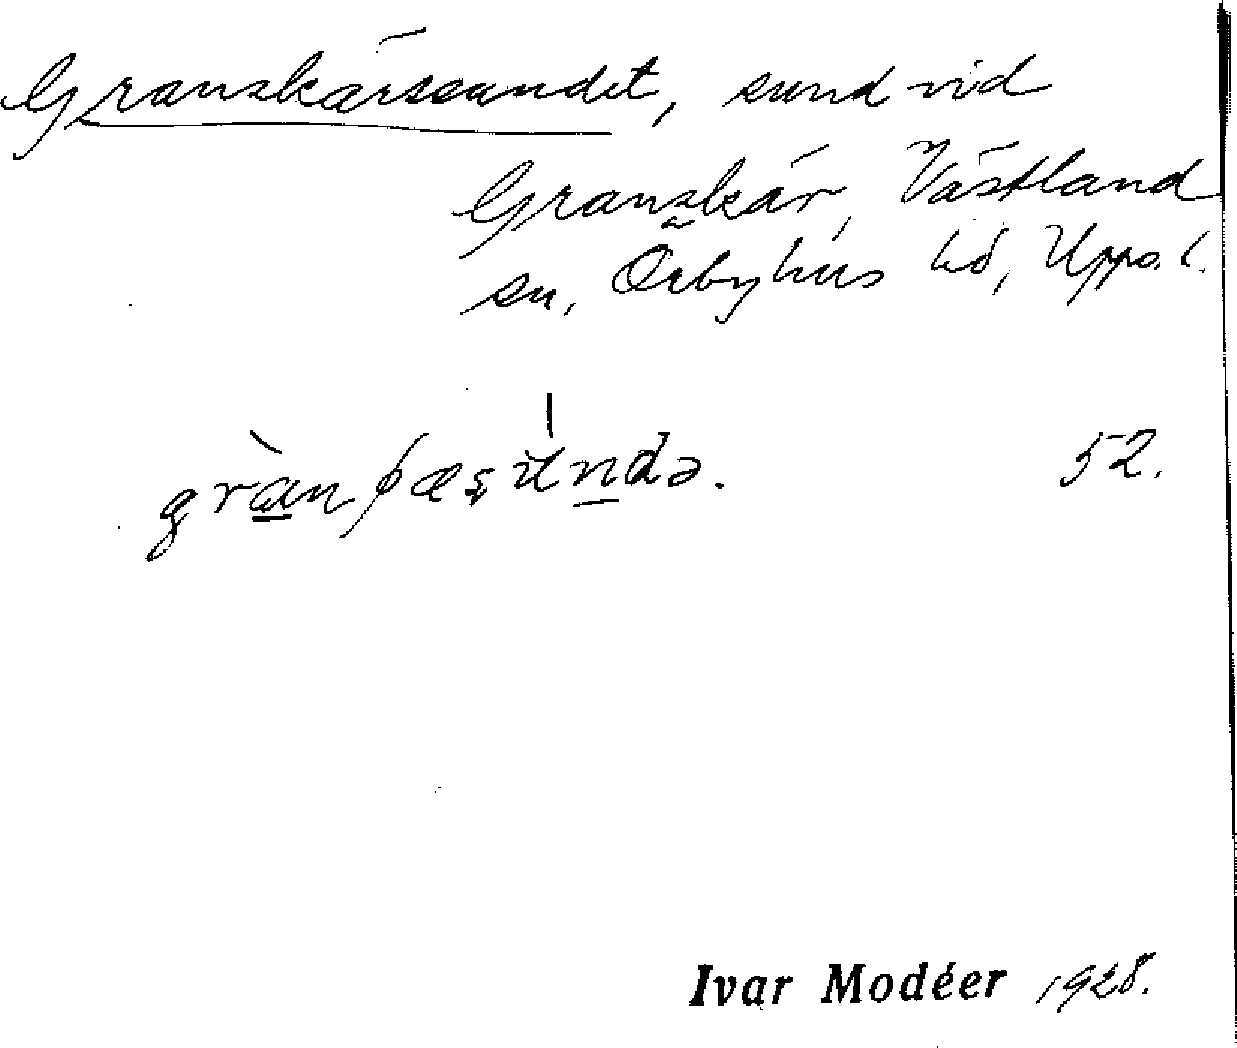 Granskärssundet, sund vid
Granskär, Västland
sn, Örbyhus hd, Upps. l.
52.
Ivar Modéer 1928.